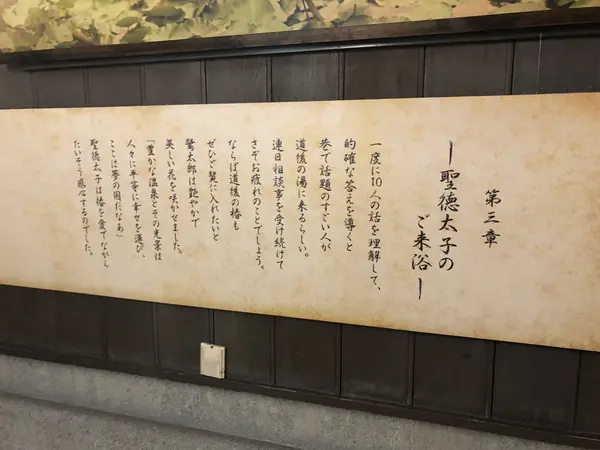 第三章
―聖徳太子の
ご来浴―
一度に10人の話を理解して、
的確な答えを導くと
巷で話題のすごい人が
道後の湯に来るらしい。
連日相談事を受け続けて
さぞお疲れのことでしょう。
ならば道後の椿も
ぜひご覧に入れたいと
鷺太郎は艶やかで
美しい花を咲かせました。
「豊かな温泉とその光景は
人々に平等に幸せを運び、
ここは夢の国だなあ」
聖徳太子は椿を愛でながら
たいそう感心するのでした。